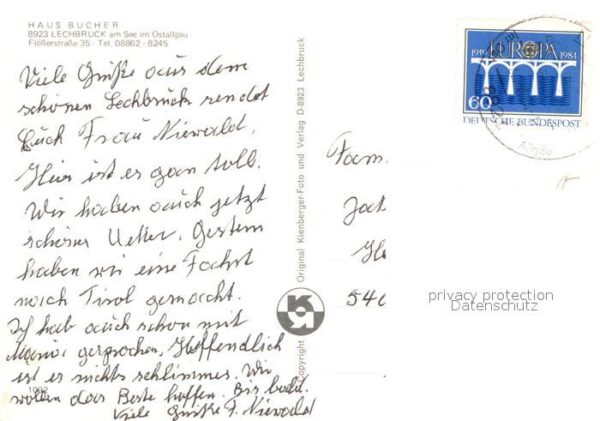 HAUS BUCHER
8923 LECHBRUCK am See im Ostallgäu
Flößerstraße 35 · Tel. 08862 - 8245
Viele Grüße aus dem
schönen Lechbruck sendet
Euch Frau Niewald,
Hier ist es ganz toll.
Wir haben auch jetzt
schönes Wetter. Gestern
haben wir eine Fahrt
nach Tirol gemacht.
Ich hab auch schon mit
gesprochen, Hoffendlich
ist es nichts schlimmes. Wir
wollen das Beste hoffen. Bis bald.
Viele Grüße F. Niewald
Copyright Original Kienberger-Foto und Verlag D-8923 Lechbruck
1959 EUROPA 1984
60
DEUTSCHE BUNDESPOST
Allgäu
Fam.
540
privacy protection
Datenschutz